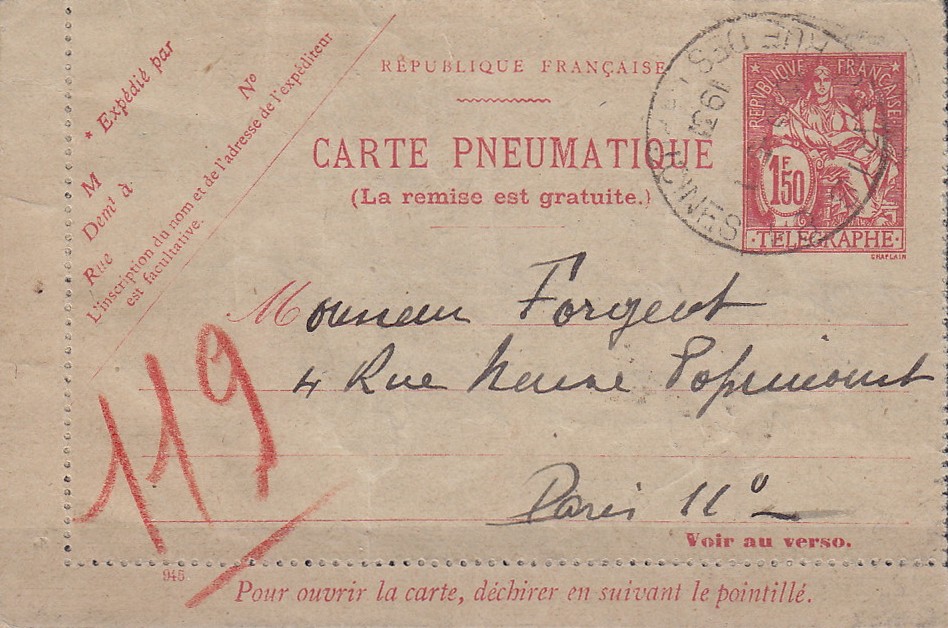 * Expédié par
N°
M
Demt à
Rue
L'inscription du nom et de l'adresse de l'expéditeur
est facultative.
RÉPUBLIQUE FRANÇAISE
CARTE PNEUMATIQUE
(La remise est gratuite.)
REPUBLIQUE FRANÇAISE
1F50
·TELEGRAPHE·
CHAPLAIN
RUE DES
1931
Monsieur Forgeot
4 Rue Neuve Popincourt
Paris 11°
119
Voir au verso.
945
Pour ouvrir la carte, déchirer en suivant le pointillé.